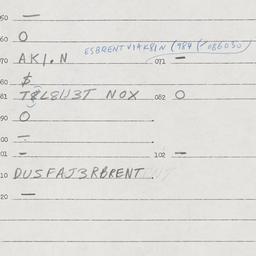 50 —
60 O
ESBRENTVIAK8IN (984 (/086050)
70 AKI.N 071 —
80 $
81 T8L8IJ3T NOX 082 O
90 O
00 —
01 – 102 —
10 DUSFAJ3RBRENT
20 —